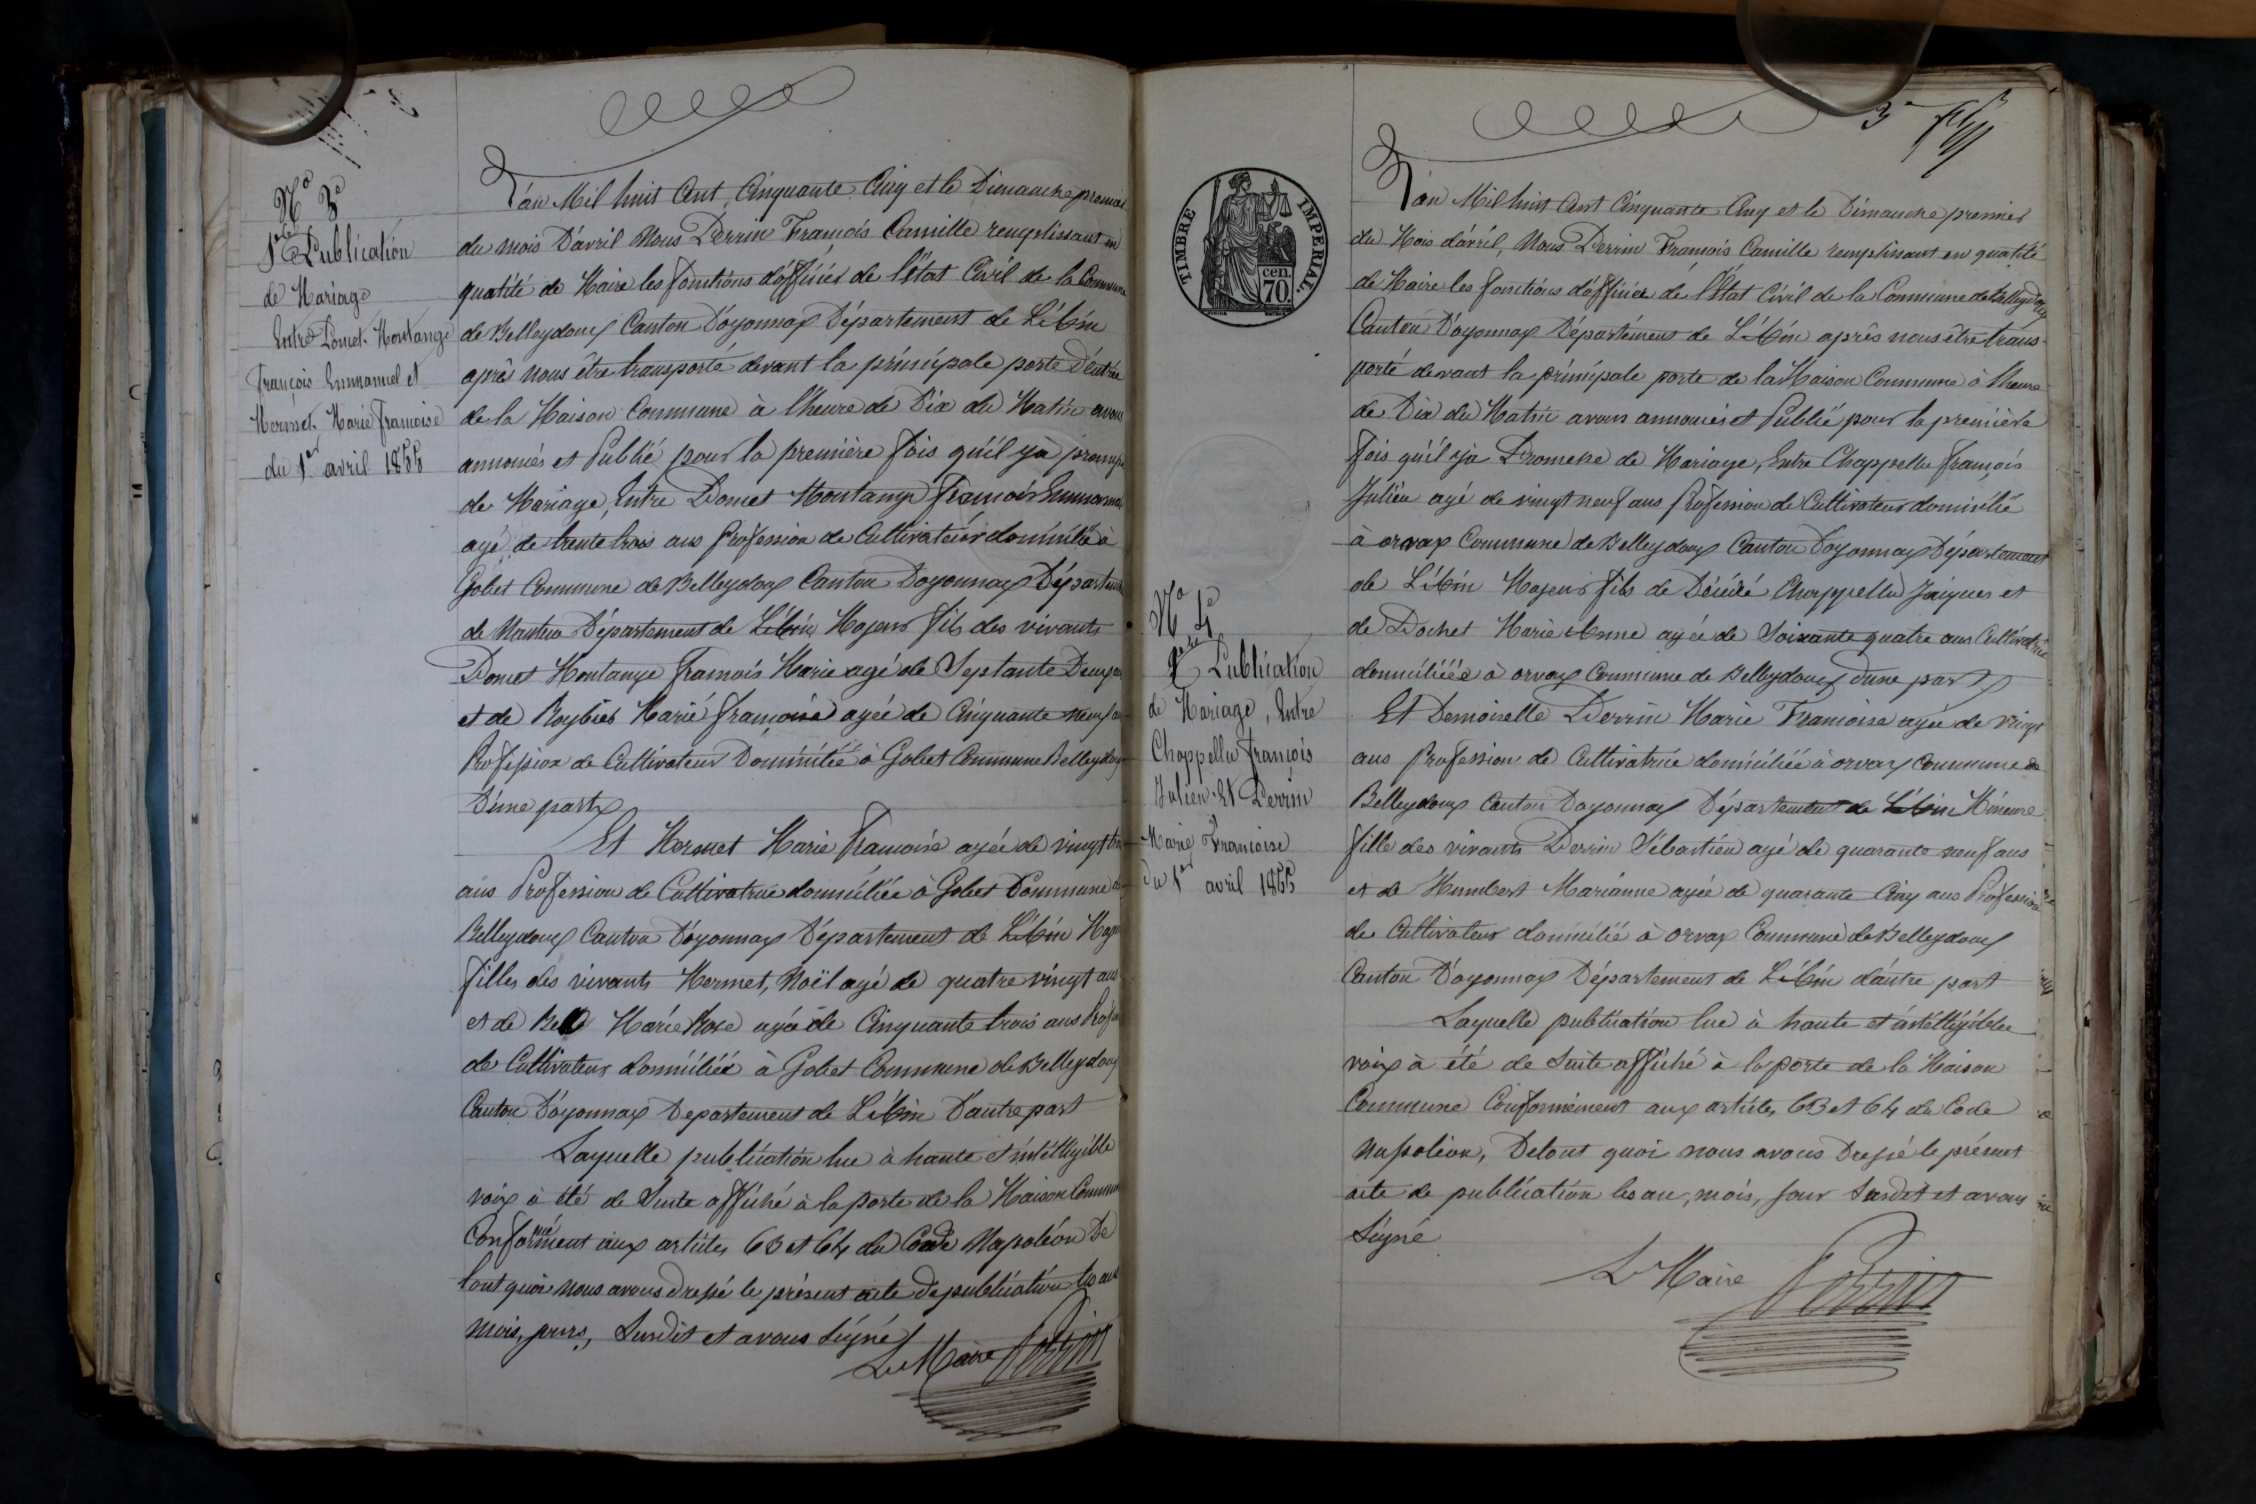 N° 3e
1ere Publication
de Mariage
Entre Pomet Montange
François Emmanuel et
Mermet Marie francoise
du 1er avril 1855
L'an Mil huit Cent Cinquante Cinq et le Dimanche premier
du mois D'avril Nous Perrin François Camille remplissant en
qualité de Maire les fonctions d'officier de l'état Civil de la Commune
de Belleydoux Canton D'oyonnax Département de L'Ain
après nous être transporté devant la principale porte D'entrée
de la Maison Commune à l'heure de Dix du Matin avons
annoncés et Publié pour la première fois qu'il y a
de Mariage, Entre Pomet Montange François
agé de trente trois ans Profession de Cultivateur domicilié à
Gobet Commune de Belleydoux Canton Doyonnax
de Nantua Département de L'Ain Majeur fils des vivants
Pomet Montange François Marie agé de Septante Deux
et de Roybier Marié françoise agée de Cinquante neuf
Profession de Cultivateur Domicilié à Gobet Commune Belleydoux
D'une part
Et Mermet Marie Francoise agée de vingt
ans Profession de Cultivatrice domiciliée à Gobet Commune
Belleydoux Canton D'oyonnax Département de L'Ain
filles des vivants Mermet, Noël agé de quatre vingt ans
et de Marie Rose agée de Cinquante trois ans
de Cultivateur domiciliée à Gobet Commune de Belleydoux
Canton D'oyonnax Departement de L'Ain D'autre part
Laquelle publication lue à haute et intélligible
voix à été de Suite affiché à la porte de la Maison
Conformément aux articles 63 et 64 du Code Napoléon De
tout quoi nous avons dressé le présent acte de publication les
mois, jours, Susdit et avons Signé
Le Maire Perrin
3e
TIMBRE IMPERIAL.
70 cen.
N° 4e
1ere Publication
de Mariage, Entre
Chappellu François
Julien Et Perrin
Marie Francoise
du 1er avril 1855
L'an Mil huit Cent Cinquante Cinq et le Dimanche premier
du Mois d'avril, Nous Perrin François Camille remplissant en qualité
de Maire les fonctions d'officier de l'état Civil de la Commune de Belleydoux
Canton D'oyonnax Département de L'Ain après nous être trans-
porté devant la principale porte de la Maison Commune à l'heure
de Dix du Matin avons annoncés et Publié pour la première
fois qu'il y à Promesse de Mariage, Entre Chappellu François
Julien agé de vingt neuf ans Profession de Cultivateur domicilié
à orvax Commune de Belleydoux Canton Doyonnax Département
de L'Ain Majeur fils de Décédé Chappellu Jaiques et
de Pochet Marie Anne agée de Soixante quatre ans Cultivatrice
domiciliéée à orvax Commune de Belleydoux d'une part
Et Demoiselle Perrin Marie Francoise agée de vingt
ans Profession de Cultivatrice domiciliée à orvax Commune de
Belleydoux Canton Doyonnax Département de L'Ain Mineure
fille des vivants Perrin Sébastien agé de quarante neuf ans
et de Humbert Marianne agée de quarante Cinq ans Profession
de Cultivateur domicilié à orvax Commune de Belleydoux
Canton D'oyonnax Département de L'Ain d'autre part
Laquelle publication lue à haute et intélligible
voix à été de Suite affiché à la porte de la Maison
Commune Conformément aux articles 63 et 64 du Code
Napoléon, De tout quoi nous avons Dressé le présent
acte de publication les an, mois, jour Susdit et avons
Signé
Le Maire Perrin